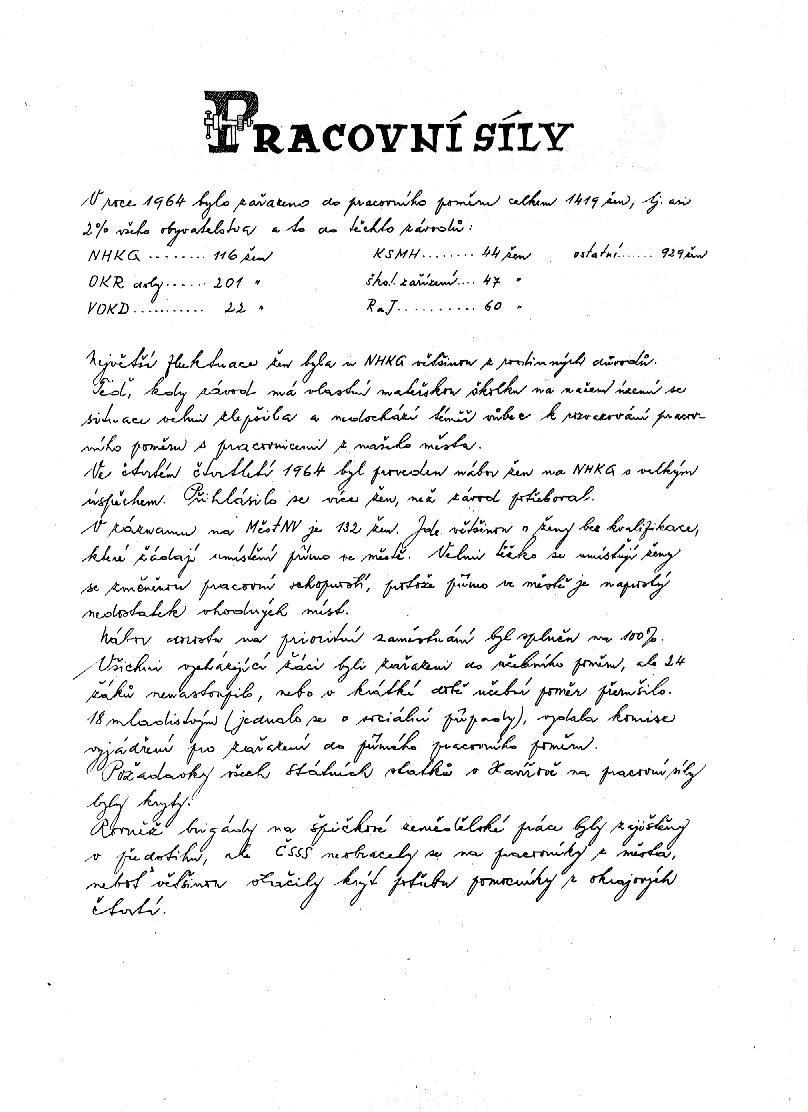 PRACOVNÍ SÍLY
V roce 1964 bylo zařazeno do pracovního poměru celkem 1419 žen, tj. asi
2% všeho obyvatelstva a to do těchto závodů:
NHKG ........ 116 žen KSMH........ 44 žen ostatní...... 929 žen
OKR doly...... 201 " škol. zařízení.... 47 "
VOKD........... 22 " RaJ........... 60 "
Největší fluktuace žen byla u NHKG většinou z rodinných důvodů.
Teď, kdy závod má vlastní mateřskou školku na našem území se
situace velmi zlepšila a nedochází téměř vůbec k rozvazování pracov-
ního poměru s pracovnicemi z našeho města.
Ve čtvrtém čtvrtletí 1964 byl proveden nábor žen na NHKG s velkým
úspěchem. Přihlásilo se více žen, než závod potřeboval.
V záznamu na MěstNV je 132 žen. Jde většinou o ženy bez kvalifikace,
které žádají umístění přímo ve městě. Velmi těžko se umisťují ženy
se změněnou pracovní schopností, protože přímo ve městě je naprostý
nedostatek vhodných míst.
Nábor dorostu na prioritní zaměstnání byl splněn na 100%.
Všichni vycházející žáci byli zařazeni do učebního poměru, ale 24
žáků nenastoupilo, nebo v krátké době učební poměr přerušilo.
18 mladistvým (jednalo se o sociální případy), vydala komise
vyjádření pro zařazení do přímého pracovního poměru.
Požadavky všech státních statků v Havířově na pracovní síly
byly kryty.
Rovněž brigády na špičkové zemědělské práce byly zajištěny
v předstihu, ale ČSSS neobracely se na pracovníky z města,
neboť většinou stačily krýt potřebu pomocníky z okrajových
čtvrtí.